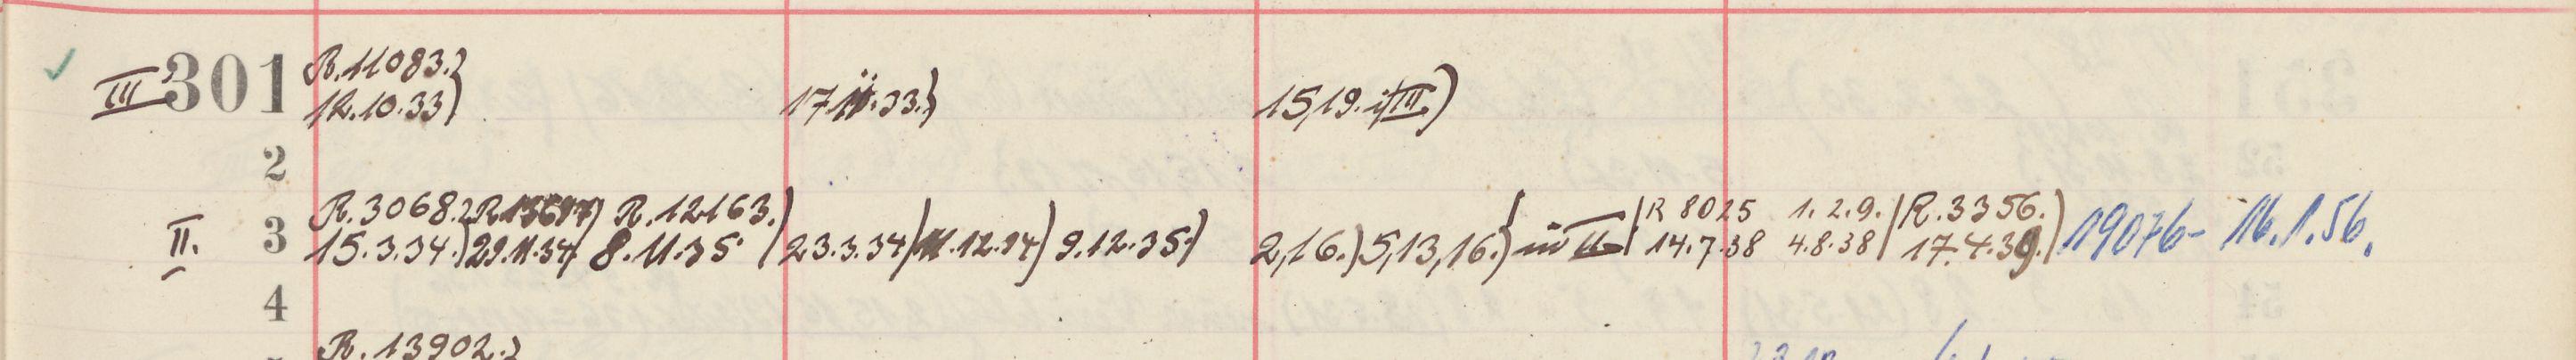 R.11083.)
III 301 12.10.33) 17.11.33.) 15,19. i/III.)
2
R.3068.) R.13697) R.12163.) R 8025 1.2.9. R.3356.)
II. 3 15.3.34.) 29.11.34) 8.11.35 23.3.34) 11.12.34) 9.12.35.) 2,16.) 5,13,16.) in II 14.7.38 4.8.38 17.4.39.) 19076- 16.1.56.
4
R.13902.)